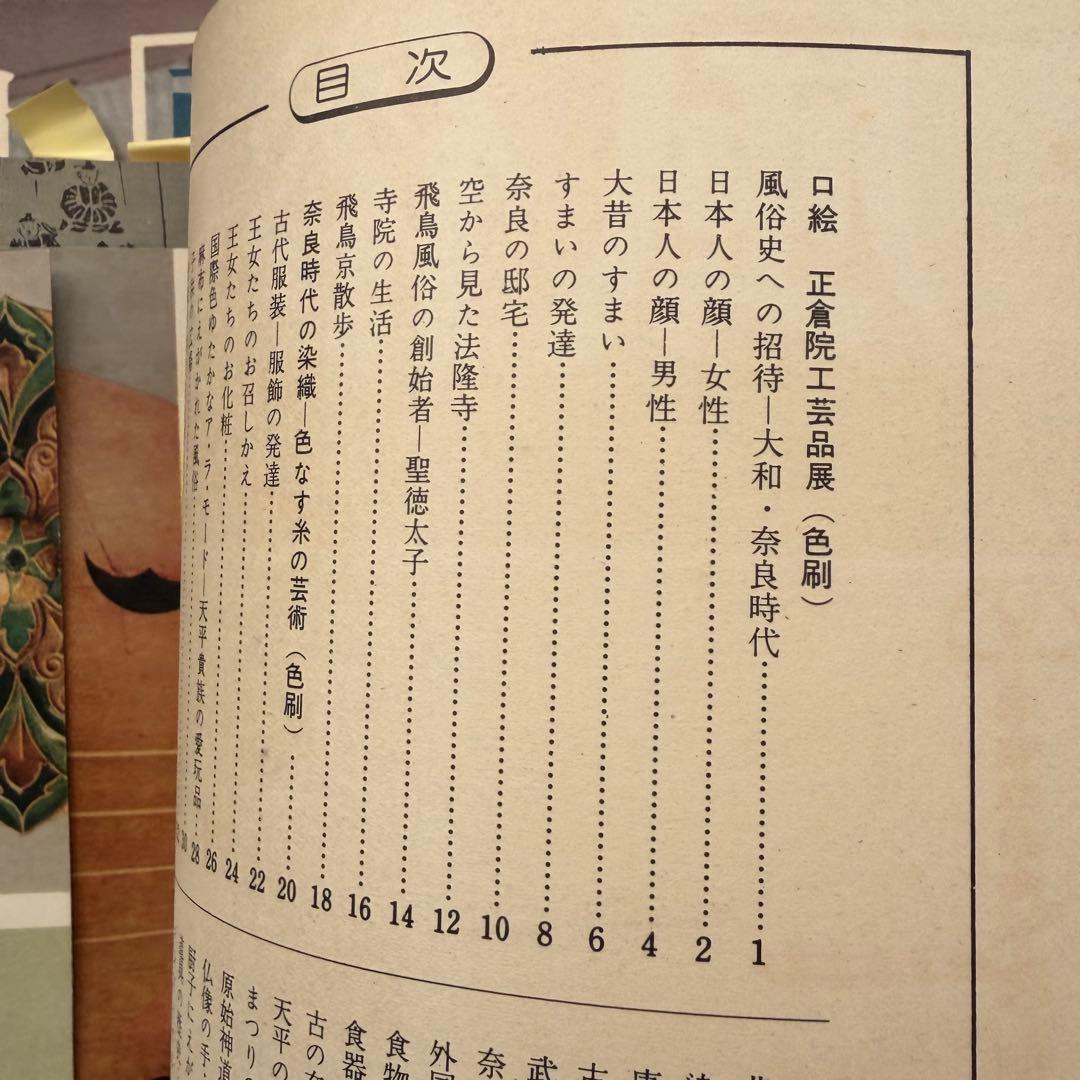 目次
口絵 正倉院工芸品展（色刷）
風俗史への招待―大和・奈良時代……1
日本人の顔―女性……2
日本人の顔―男性……4
大昔のすまい……6
すまいの発達……8
奈良の邸宅……10
空から見た法隆寺……12
飛鳥風俗の創始者―聖徳太子……14
寺院の生活……16
飛鳥京散歩……18
奈良時代の染織―色なす糸の芸術（色刷）……20
古代服装―服飾の発達……22
王女たちのお召しかえ……24
王女たちのお化粧……26
国際色ゆたかなア・ラ・モード―天平貴族の愛玩品……28
麻布にえがかれた風俗……30
武
奈
外国
食物
食器
古の
天平の
まつりの
原始神道
仏像の手
厨子にえが